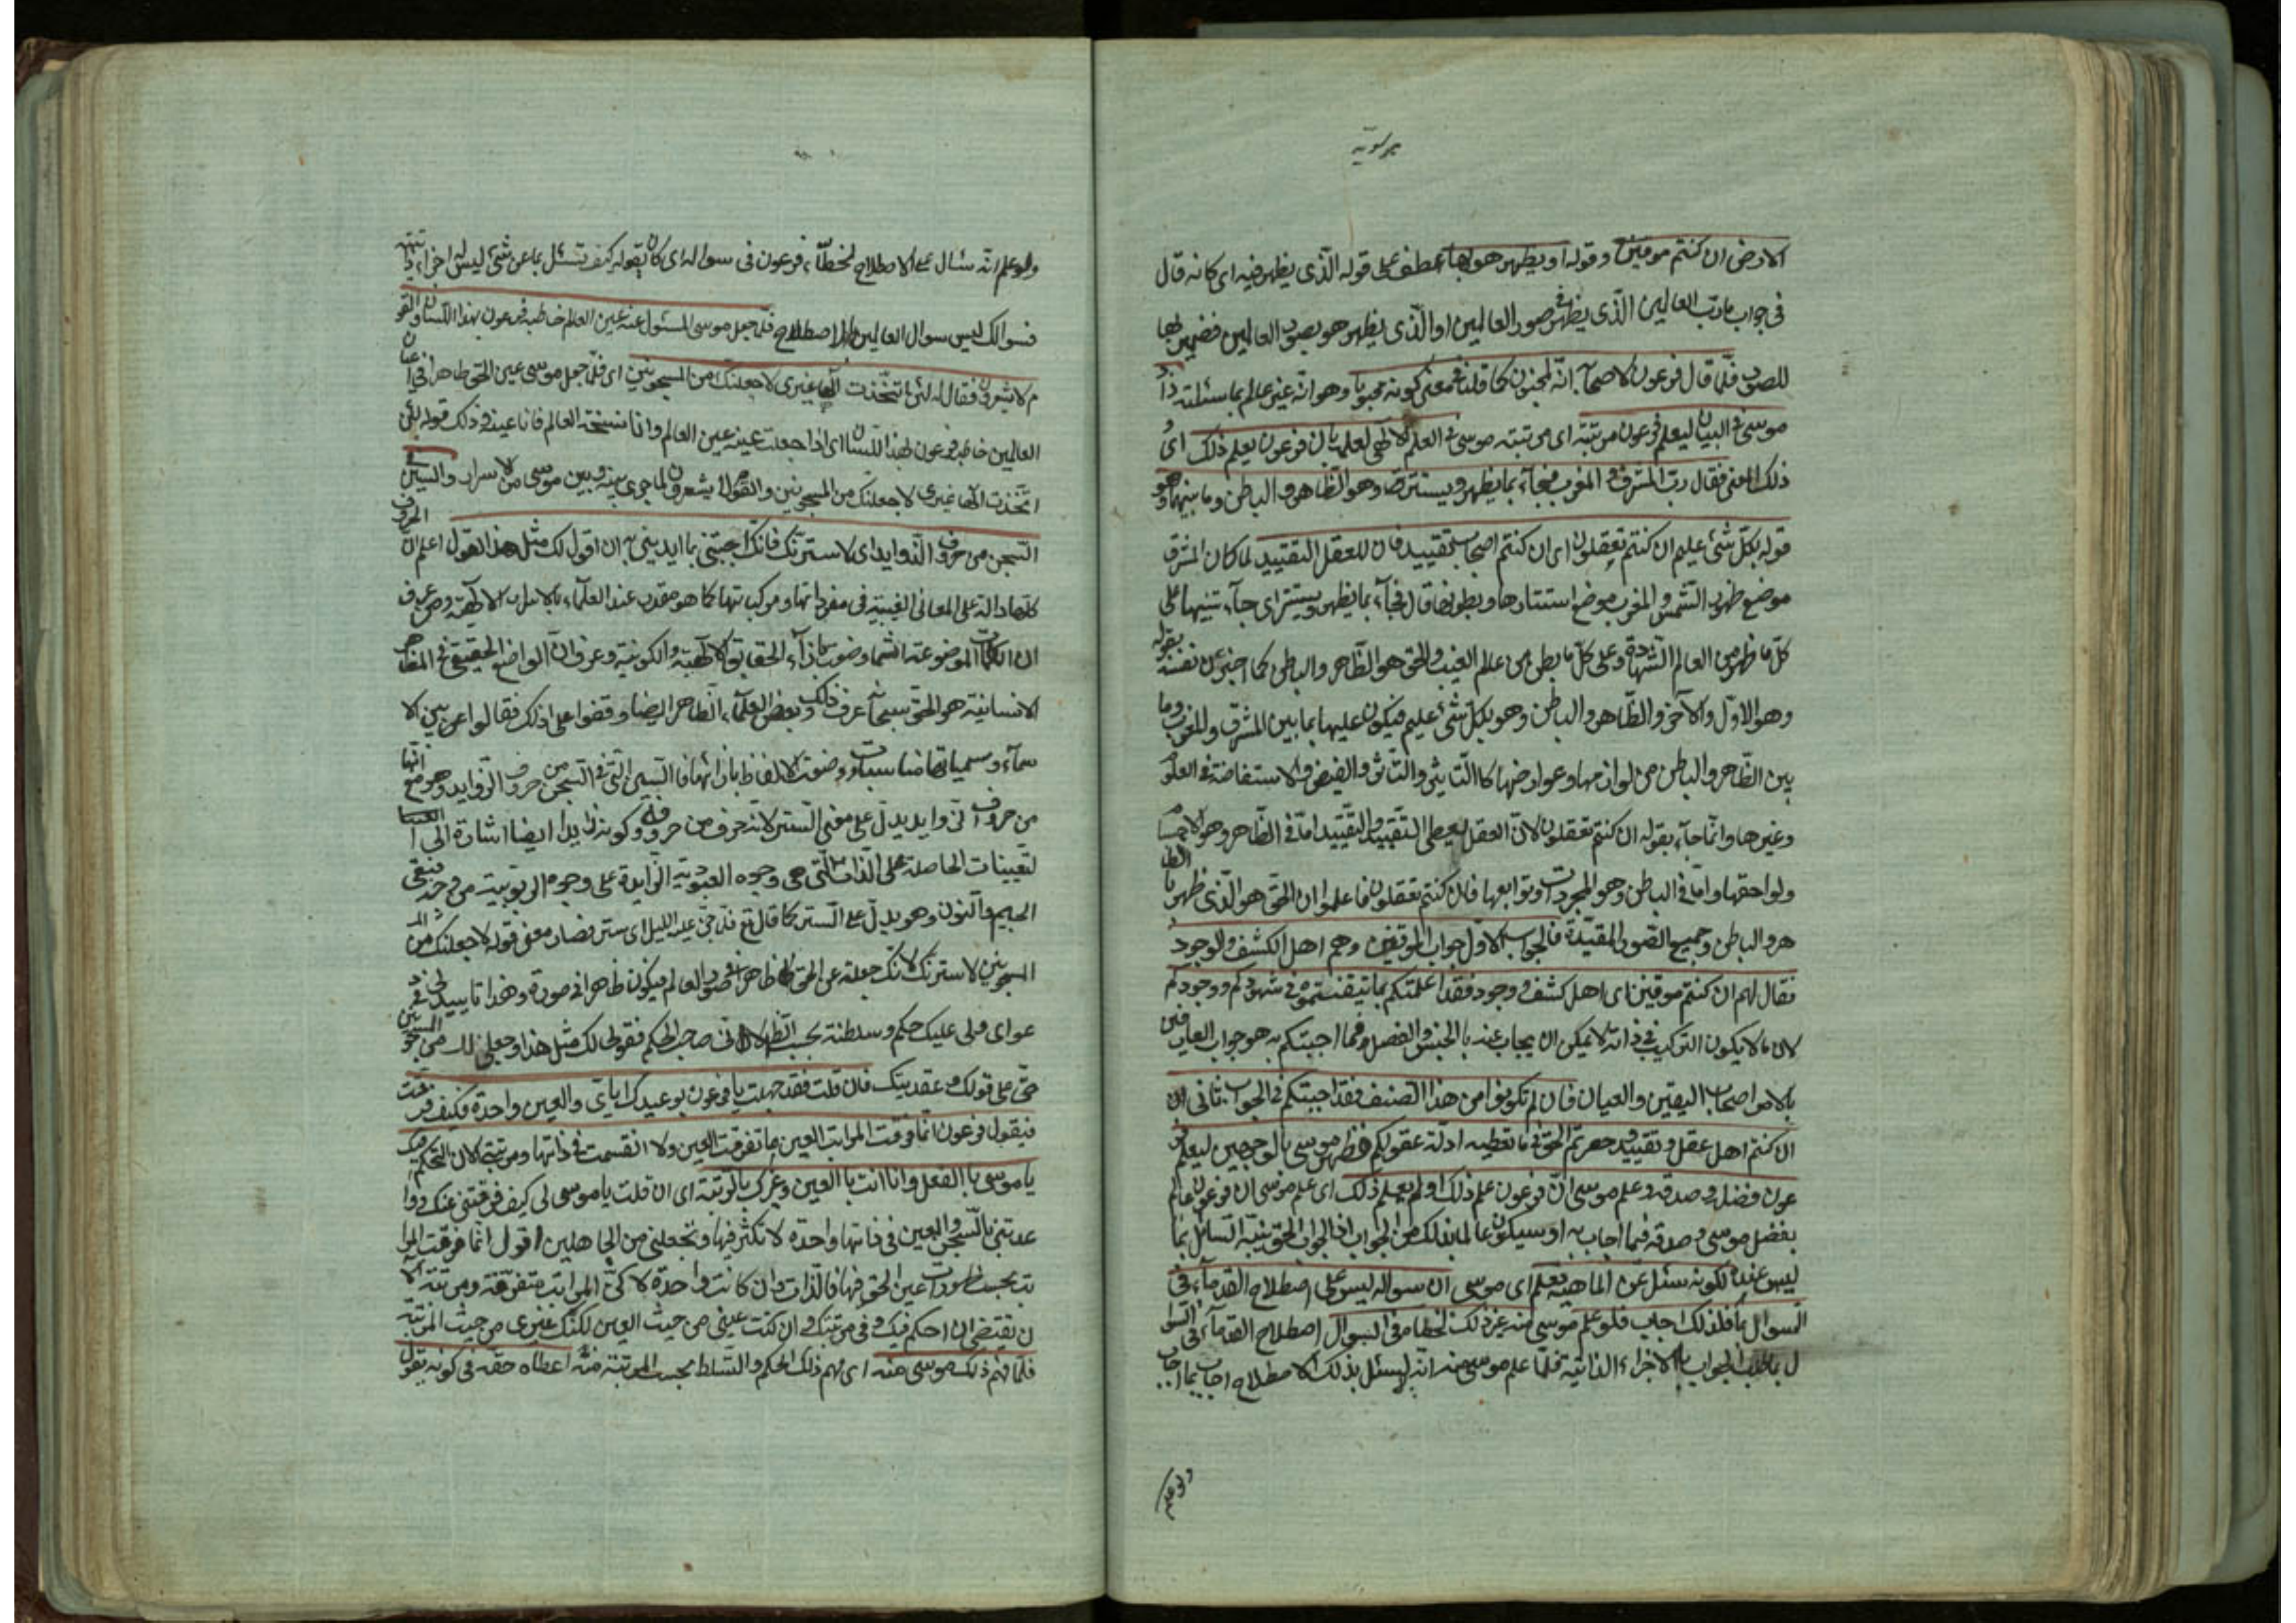 موسویه
الارض ان كنتم موقنين وقوله او يظهر هو بها عطف على قوله الذى يظهر فيه اى كانه قال
فى جواب ما رب العالمين الذى يظهر فى صور العالمين او الذى يظهر هو بصور العالمين فضمير بها
للصور فلما قال فرعون لاصحابه انه لمجنون كما قلنا فى معنى كونه مجنونا وهو انه غير عالم بما سئلته زاد
موسى فى البيان ليعلم فرعون مرتبته اى مرتبته موسى فى العلم الالهى لعلمه بان فرعون يعلم ذلك اى
ذلك المعنى فقال رب المشرق والمغرب فجاء بما يظهر ويستتر وهو الظاهر والباطن وما بينهما وهو
قوله بكل شئ عليم ان كنتم تعقلون اى ان كنتم اصحاب تقييد فان للعقل التقييد لما كان المشرق
موضع ظهور الشمس والمغرب موضع استتارها وبطونها قال فجاء بما يظهر ويستتر اى جاء تنبيها على
كل ما ظهر من العالم الشهادة وعلى كل ما بطن من عالم الغيب والحق هو الظاهر والباطن كما اخبر عن نفسه بقوله
وهو الاول والآخر والظاهر والباطن وهو بكل شئ عليم فيكون عليها بما بين المشرق والمغرب وما
بين الظاهر والباطن من لوازمها وعوارضها كالتأثير والتاثر والفيض والاستفاضة فى العلو
وغيرها وانما جاء بقوله ان كنتم تعقلون لان العقل يعطى التقييد والتقييد اما فى الظاهر وهو الاجسام
ولواحقها واما فى الباطن وهو المجردات وتوابعها فان كنتم تعقلون فاعلموا ان الحق هو الذى ظهر با الظا
هر والباطن وجميع الصور المقيدة فالجواب الاول جواب الموقنين وهم اهل الكشف والوجود
فقال لهم ان كنتم موقنين اى اهل كشف ووجود فقد اعلمتكم بما تيقنتموه فى شهودكم ووجودكم
لان ما لا يكون التركيب فى ذاته لا يمكن ان يجاب عنه بالجنس والفصل فما اجبتكم به هو جواب العارفين
بالامر اصحاب اليقين والعيان فان لم تكونوا من هذا الصنف فقد اجبتكم فى الجواب ثانى ان
ان كنتم اهل عقل وتقييد وحصرتم الحق فى ما تعطيه ادلة عقولكم فظهر موسى بالوجهين ليعلم فر
عون فضله وصدقه وعلم موسى ان فرعون علم ذلك او لم يعلم ذلك اى علم موسى ان فرعون عالم
بفضل موسى وصدقه فيما اجاب به او سيكون عالما بذلك من الجواب اذ الجواب الحق ينبه السائل بما
ليس عنده لكونه سئل عن الماهية فعلم اى موسى ان سواله ليس على اصطلاح القدماء فى
السوال بما فلذلك اجاب فلو علم موسى منه غير ذلك لخطاه فى السوال اصطلاح القدماء فى السوا
ل بما طلب الجواب بالاجزاء الذاتية فلما علم موسى منه انه لم يسئل بذلك الاصطلاح اجاب بما اجاب
ولو علم
ولو علم انه سئال على الاصطلاح لخطأ فرعون فى سواله اى كان يقوله كيف تسئل بما عن شئ ليس له اجزاء ذاتية
فسوالك ليس سوال العالمين بالاصطلاح فلما جعل موسى المسئول عنه عين العالم خاطبه فرعون بهذا اللسان والقو
م لا يشعرون فقال له لئن اتخذت الها غيرى لاجعلنك من المسجونين اى فلما جعل موسى عين الحق ظاهرا فى اعيان
العالمين خاطبه فرعون بهذا اللسان اى اذا جعلت عينه عين العالم وانا نسخة العالم فانا عينه وذلك قوله لئن
اتخذت الها غيرى لاجعلنك من المسجونين والقوم لا يشعرون لما جرى بينه وبين موسى من الاسرار والسين فى
السجن من حروف الزوايد اى لاسترنك فانك اجبتنى بما ايدتنى به ان اقول لك مثل هذا القول اعلم ان الحروف
كلها دالة على المعانى الغيبية فى مفرداتها ومركباتها كما هو مقرر عند العلماء بالاسرار الالهية ومن عرف
ان الكلمات الموضوعة انما وضعت بازاء الحقايق الالهية والكونية وعرف ان الواضع الحقيقى فى المظاهر
الانسانية هو الحق سبحانه عرف ذلك وبعض العلماء الظاهر ايضا وقفوا على ذلك فقالوا عن بين الا
سماء ومسمياتها مناسبات ووضعت الالفاظ بازائها فالسين التى فى السجن من حروف الزوايد وهو مع انها
من حروف الزوايد يدل على معنى الستر لانه حرف من حروفه وكونه زايدا ايضا اشارة الى ا
لتعينات الحاصلة على الذات التى هى وجوه العبودية الزايدة على وجوه الربوبية من وجه فبقى
الجيم والنون وهو يدل على الستر كما قال تع فلما جن عليه الليل اى ستر فصار معنى قوله لاجعلنك من الم
سجونين لاسترنك لانك جعلته عن الحق ظاهرا فى صور العالم فيكون ظاهرا فى صورة وهذا تاييد لى فى د
عواى فلى عليك حكم وسلطنة بحسب الظاهر لانى صاحب الحكم فقولى لك مثل هذا وجعلى لك من المسجونين
حق على قولك وعقديتك فان قلت فقد جهلت يا فرعون بوعيدك اياى والعين واحدة فكيف فرقت
فيقول فرعون انما فرقت المراتب العين ما تفرقت العين ولا انقسمت فى ذاتها ومرتبتى الان التحكم فيك
يا موسى بالفعل وانا انت بالعين وغيرك بالرتبة اى ان قلت يا موسى لى كيف فرقتنى عنك واو
عدتنى بالسجن والعين فى ذاتها واحدة لا تكثر فيها وتجعلنى من الجاهلين اقول انما فرقت المرا
تب بحسب ظهورات عين الحق فيها فالذات وان كانت واحدة لكن المراتب متفرقة ومرتبتى الآ
ن يقتضى ان احكم فيك وفى مرتبتك وان كنت عينى من حيث العين لكنك غيرى من حيث المرتبة
فلما فهم ذلك موسى منه اى فهم ذلك الحكم والتسلط بحسب المرتبة منه اعطاه حقه فى كونه يقول